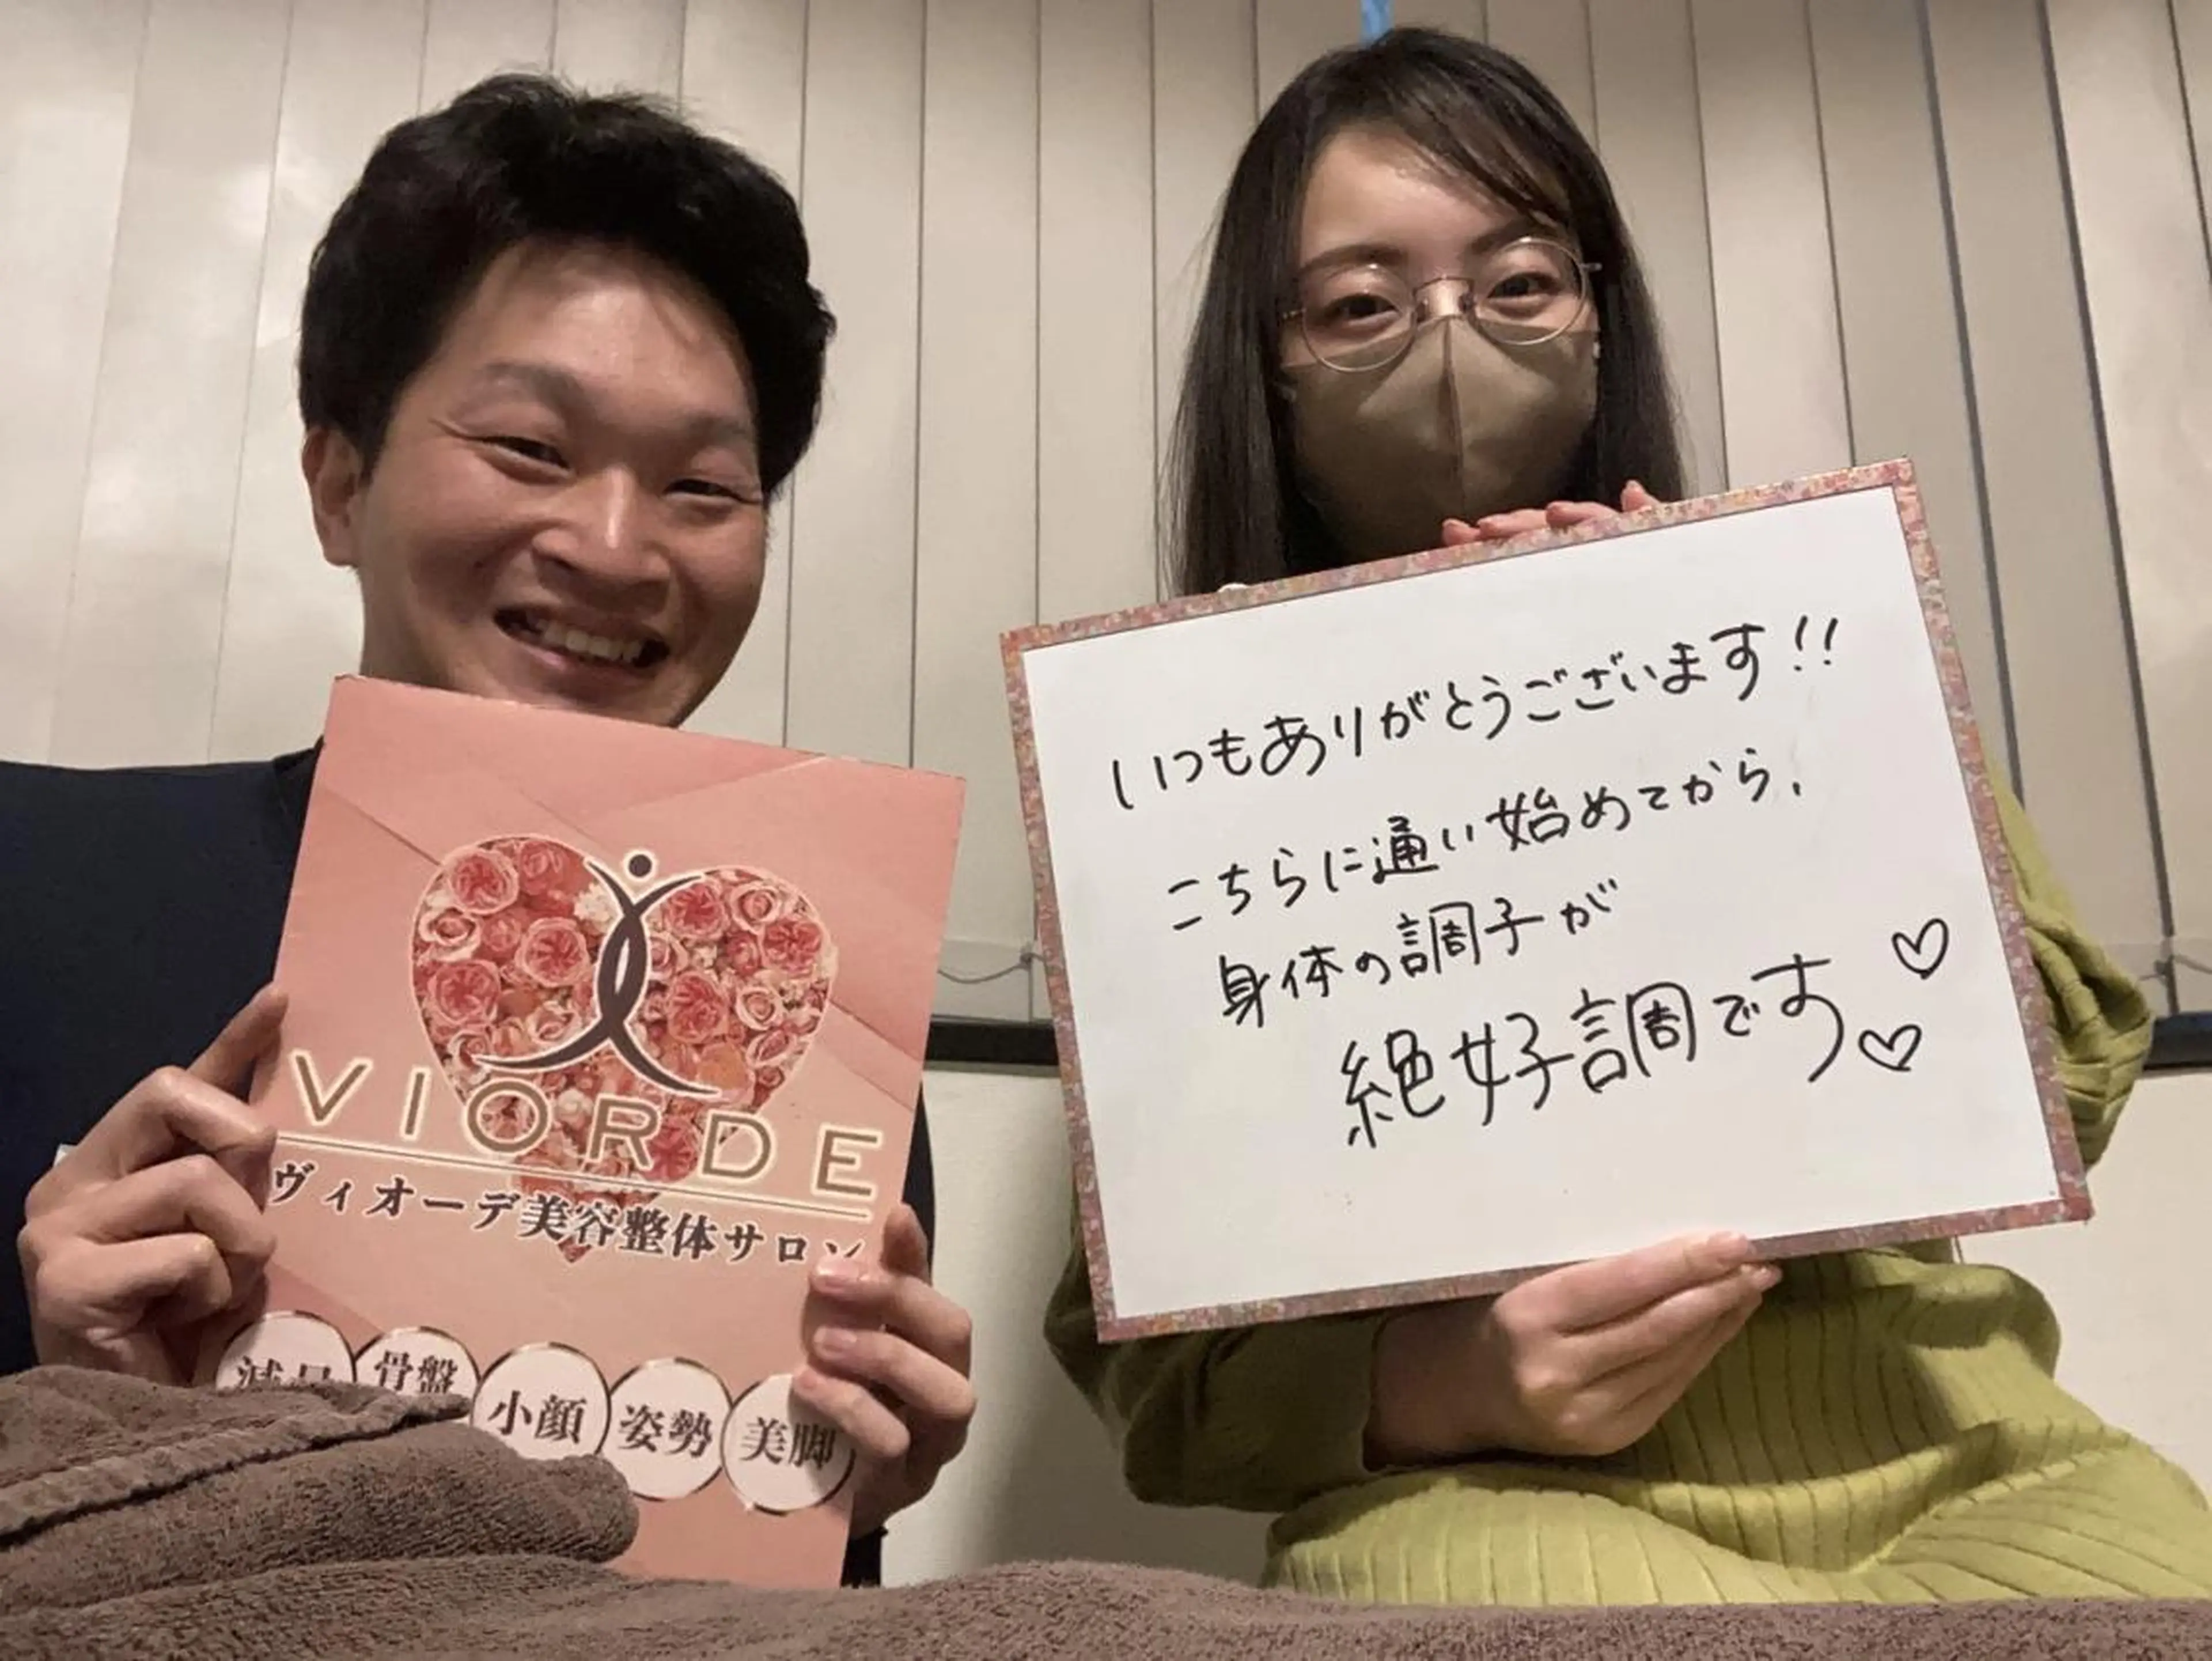 VIORDE
ヴィオーデ美容整体サロン
骨盤
小顔
姿勢
美脚
いつもありがとうございます!!
こちらに通い始めてから、
身体の調子が
絶好調です♡♡